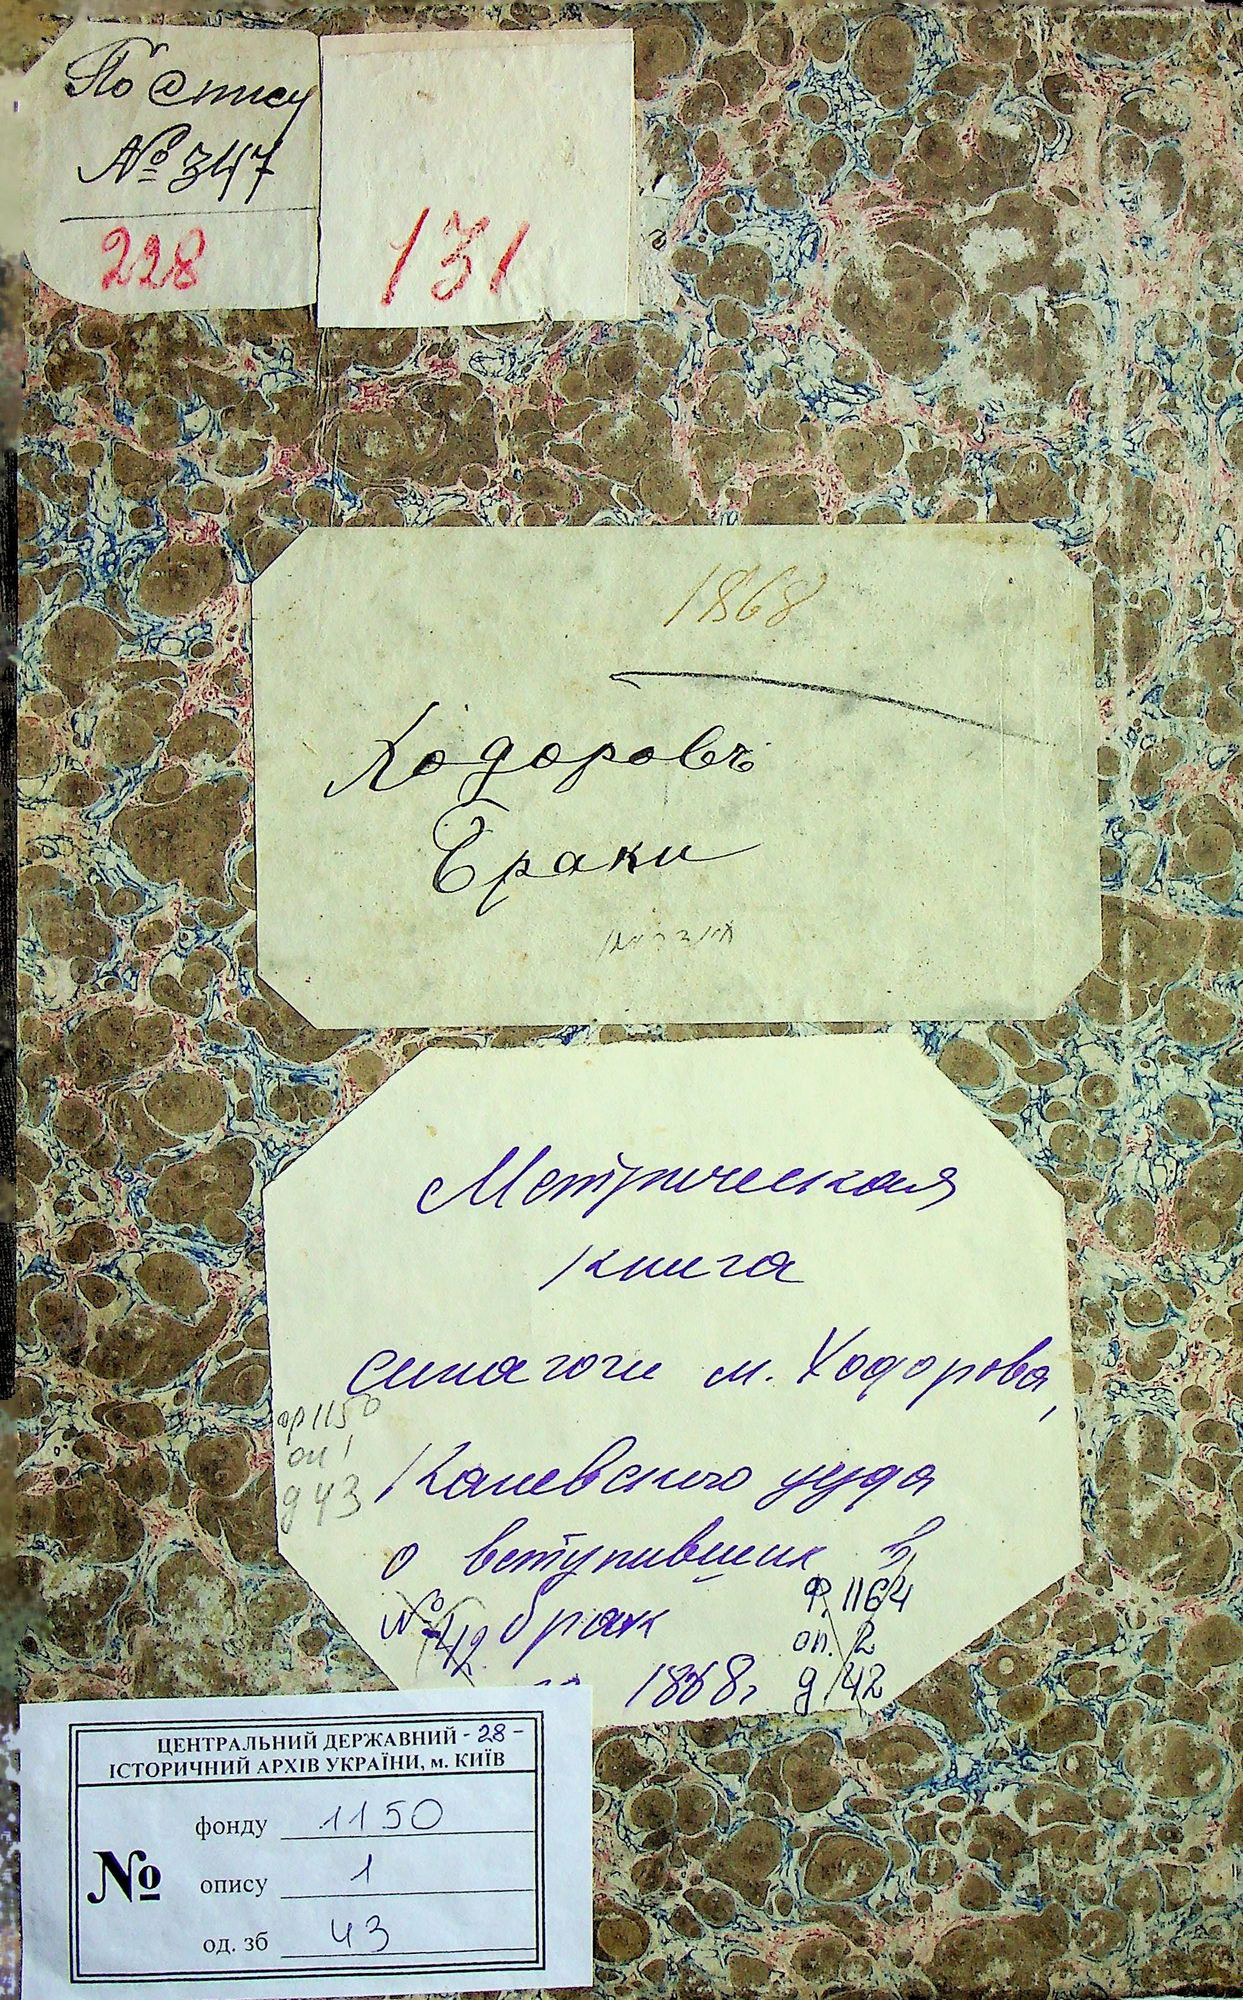 По опису
№ 347
228
131
1868
Ходоровъ
Браки
Метрическая
книга
синагоги м. Ходорова,
Каневского уезда
о вступивших в
брак
1868г
ф 1150
оп 1
д 43
№ 42
Ф. 1164
оп. 2
д 42
ЦЕНТРАЛЬНИЙ ДЕРЖАВНИЙ - 28 -
ІСТОРИЧНИЙ АРХІВ УКРАЇНИ, м. КИЇВ
№
фонду 1150
опису 1
од. зб 43